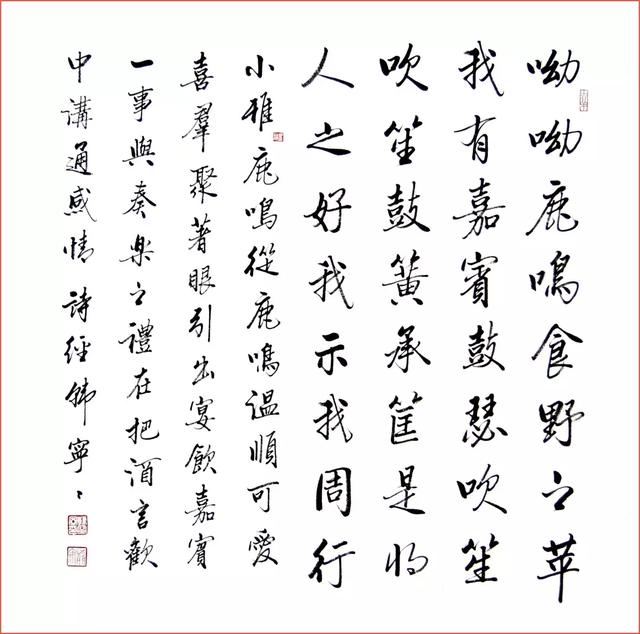 呦呦鹿鳴食野之苹
我有嘉賓鼓瑟吹笙
吹笙鼓簧承筐是将
人之好我示我周行
小雅鹿鳴從鹿鳴溫順可愛
喜羣聚著眼引出宴飲嘉賓
一事與奏樂之禮在把酒言歡
中溝通感情詩經寧